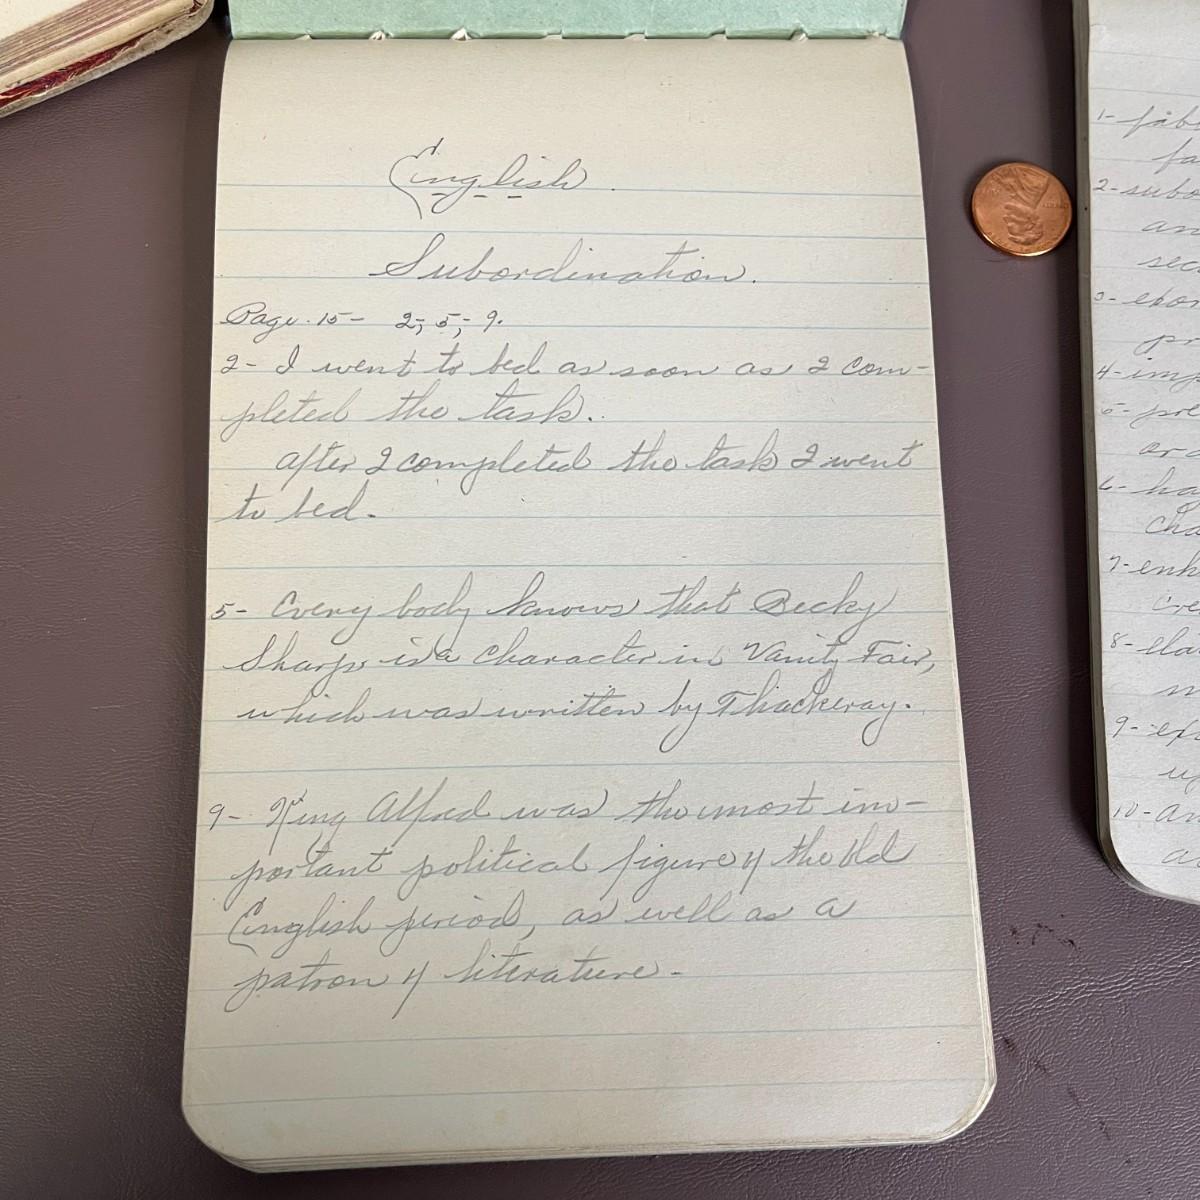 English.
Subordination.
Page. 15- 2; 5; 9.
2- I went to bed as soon as I com-
pleted the task.
after I completed the task I went
to bed.
5- Every body knows that Becky
Sharp is a character in Vanity Fair,
which was written by Thackeray.
9- King Alfred was the most im-
portant political figure of the Old
English period, as well as a
patron of literature.
1-
fa
2-
an
sec
3-
pr
4- imp
5- pre
or
6- ha
cha
7- enh
cre
8- ela
9- exp
up
10- an
a